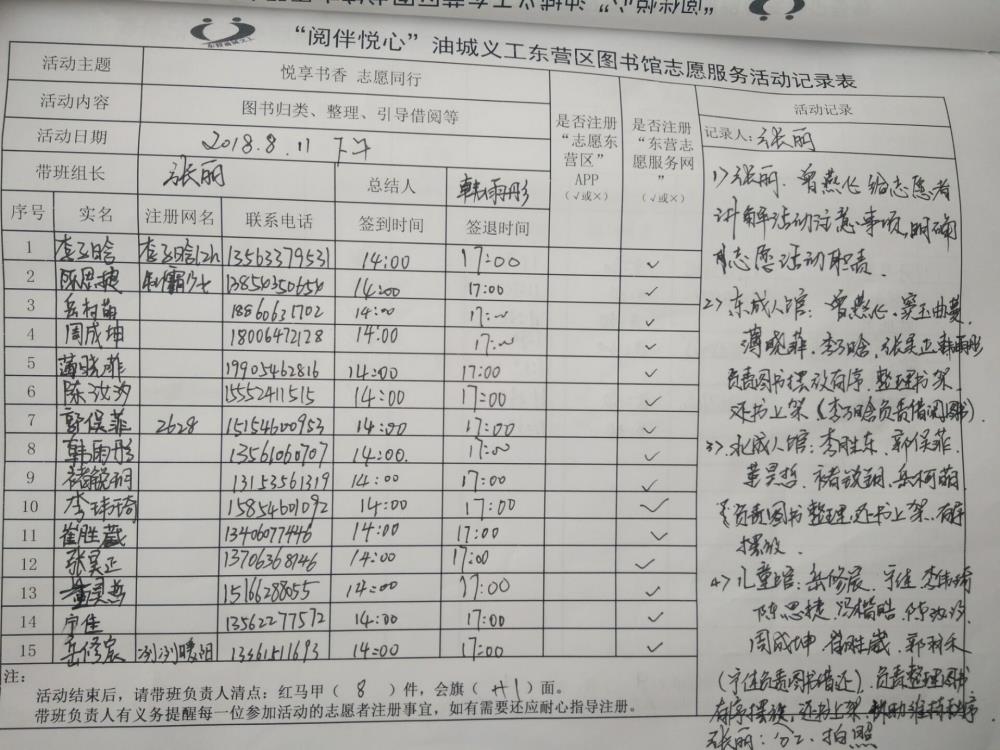 “阅伴悦心”油城义工东营区图书馆志愿服务活动记录表
活动主题 悦享书香 志愿同行
活动内容 图书归类、整理、引导借阅等
活动日期 2018.8.11 下午
带班组长 张丽 总结人 韩雨彤
是否注册“志愿东营区”APP（√或×）
是否注册“东营志愿服务网”（√或×）
序号 实名 注册网名 联系电话 签到时间 签退时间
1 13563379531 14:00 17:00 ✓
2 陈思捷 13854350654 14:00 17:00 ✓
3 18860631702 14:00 ✓
4 周成坤 18006472128 14:00 ✓
5 薄晓菲 19905462816 14:00 17:00 ✓
6 15552411515 14:00 17:00 ✓
7 郭俣菲 2628 15154600953 14:00 17:00 ✓
8 韩雨彤 13561060707 14:00. ✓
9 13153561319 14:00 17:00 ✓
10 李玮琦 15854601092 14:00 17:00 ✓
11 崔胜葳 13406077446 14:00 17:00 ✓
12 张昊正 13706368146 14:00 17:00 ✓
13 15166288055 14:00 17:00 ✓
14 宁佳 13562277572 14:00 17:00 ✓
15 岳修宸 14:00 17:00 ✓
注：
活动结束后，请带班负责人清点：红马甲（8）件，会旗（1）面。
带班负责人有义务提醒每一位参加活动的志愿者注册事宜，如有需要还应耐心指导注册。
活动记录
记录人：张丽
1、张丽、曾燕化给志愿者
讲解活动注意事项，明确
志愿活动职责．
2、东成人馆：曾燕化、窦玉曲蔓、
薄晓菲、张昊正、韩雨彤
负责图书摆放有序、整理书架、
还书上架
3、北成人馆：李胜东、郭俣菲、
负责图书整理，还书上架、有序
摆放．
4、儿童馆：岳修宸、宁佳、李玮琦
陈思捷、冯楷皓、
周成坤、崔胜葳、郭羽禾
(宁佳负责图书借还)．负责整理图书
有序摆放，还书上架，协助维持秩序
张丽：分工、拍照